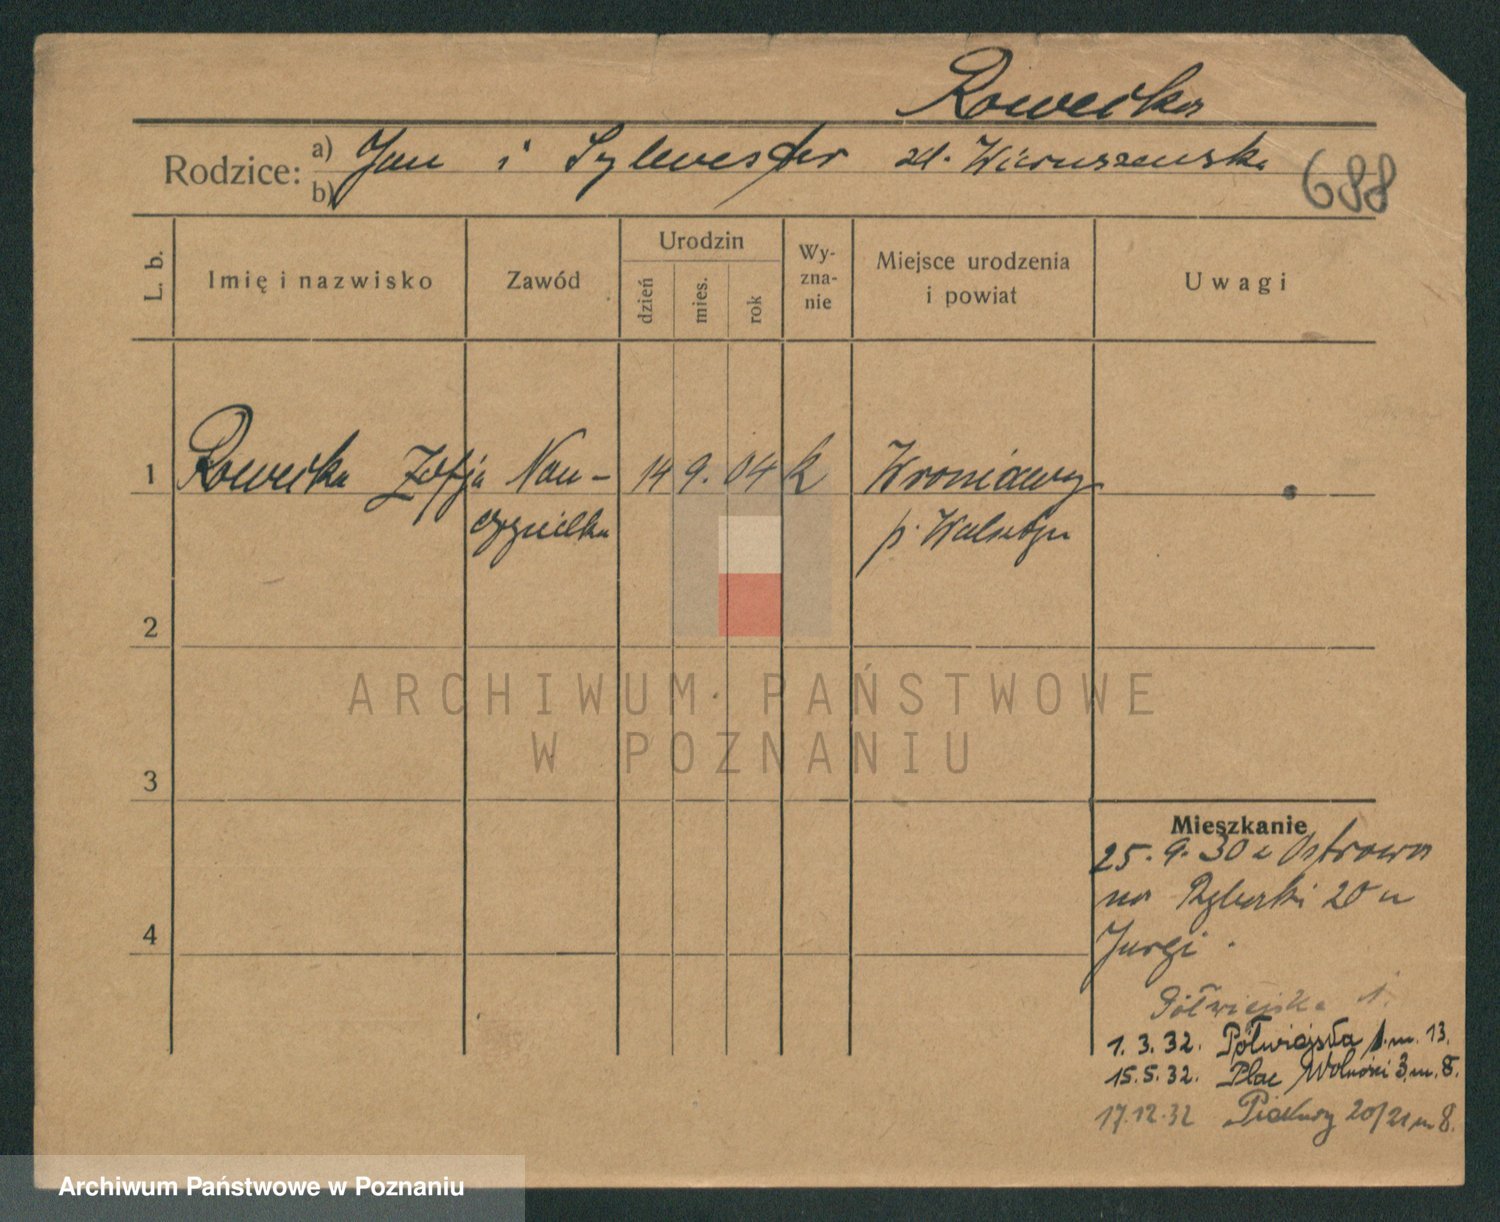 Rowecka
Rodzice: a) Jan i Sylwester zd. Wieruszewska
b)
688
L. b.
Imię i nazwisko
Zawód
Urodzin
dzień
mies.
rok
Wy-
zna-
nie
Miejsce urodzenia
i powiat
Uwagi
1 Rowecka Zofja Nau- 14 9. 04 k Wroniawy
czycielka p. Wolsztyn
2
ARCHIWUM PAŃSTWOWE
W POZNANIU
3
Mieszkanie
25. 9. 30 z Ostrowa
na Rybaki 20 u
4
Jurgi
Półwiejska 1.
1. 3. 32. Półwiejska 1. m. 13.
15. 5. 32. Plac Wolności 3. m. 8.
17.12.32 Piekary 20/21 m 8.
Archiwum Państwowe w Poznaniu